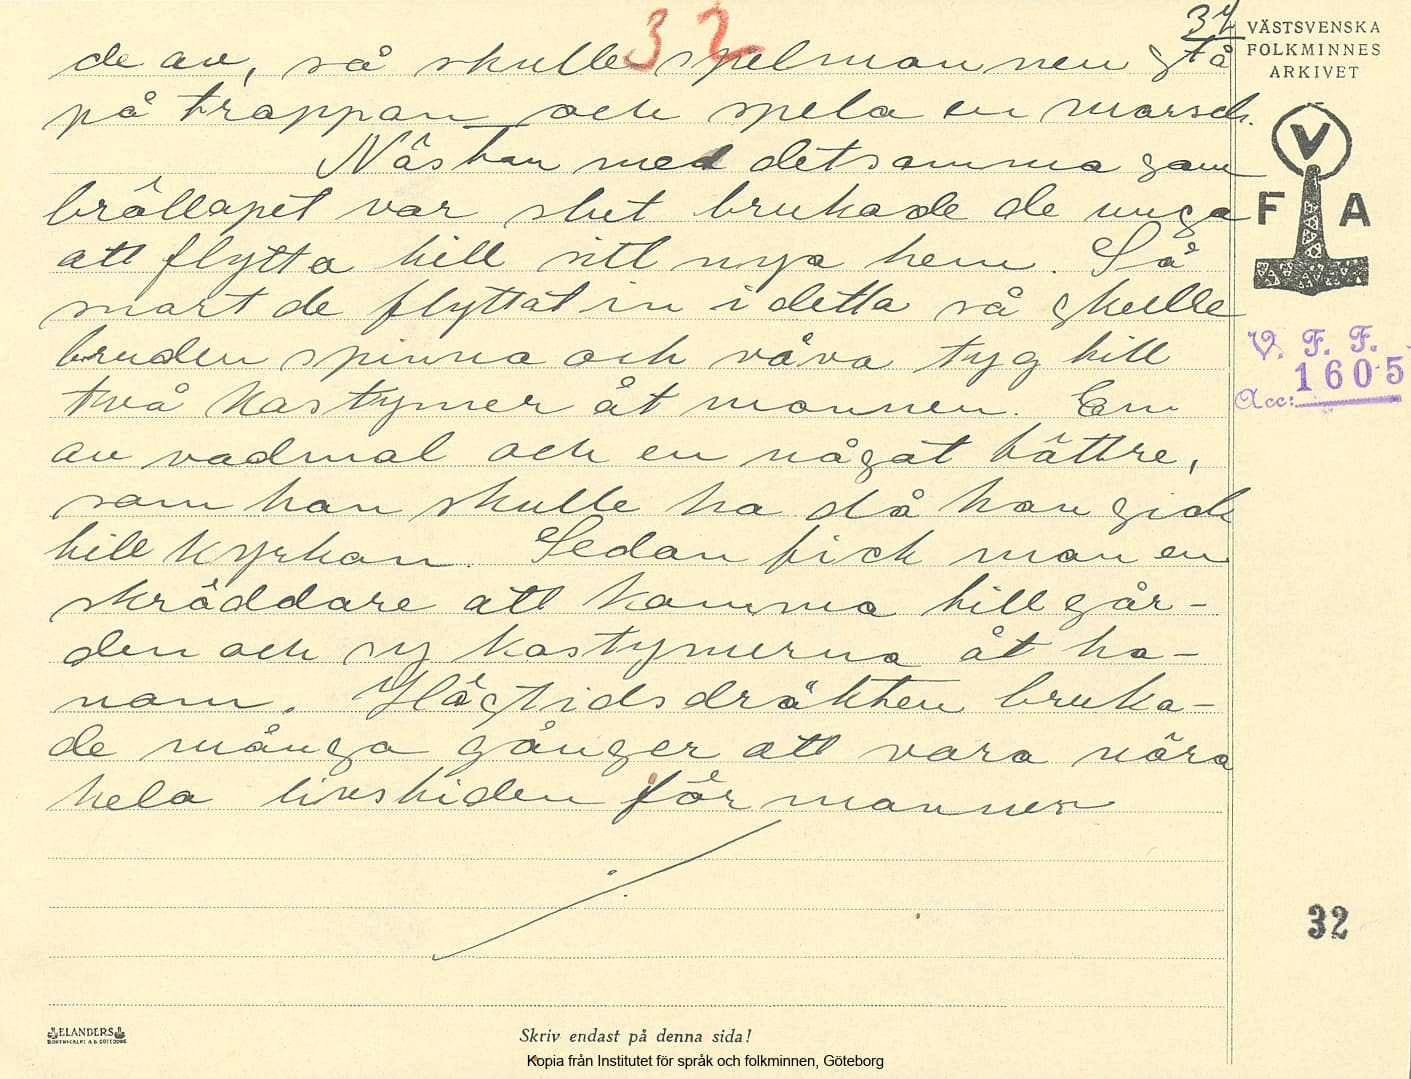 32
32
VÄSTSVENSKA
FOLKMINNES
ARKIVET
de av, så skulle spelmannen stå
på trappan och spela en marsch.
Nästan med detsamma som
bröllopet var slut brukade de unga
att flytta till sitt nya hem. Så
snart de flyttat in i detta så skulle
bruden spinna och väva tyg till
två kostymer åt mannen. En
av vadmal och en något bättre,
som han skulle ha då han gick
till kyrkan. Sedan fick man en
skräddare att komma till går-
den och sy kostymerna åt ho-
nom. Högtidsdräkten bruka-
de många gånger att vara nära
hela livstiden för mannen
V
F A
V. F. F.
Acc: 1605
32
ELANDERS
BOKTRYCKERI A.B. GÖTEBORG
Skriv endast på denna sida!
Kopia från Institutet för språk och folkminnen, Göteborg